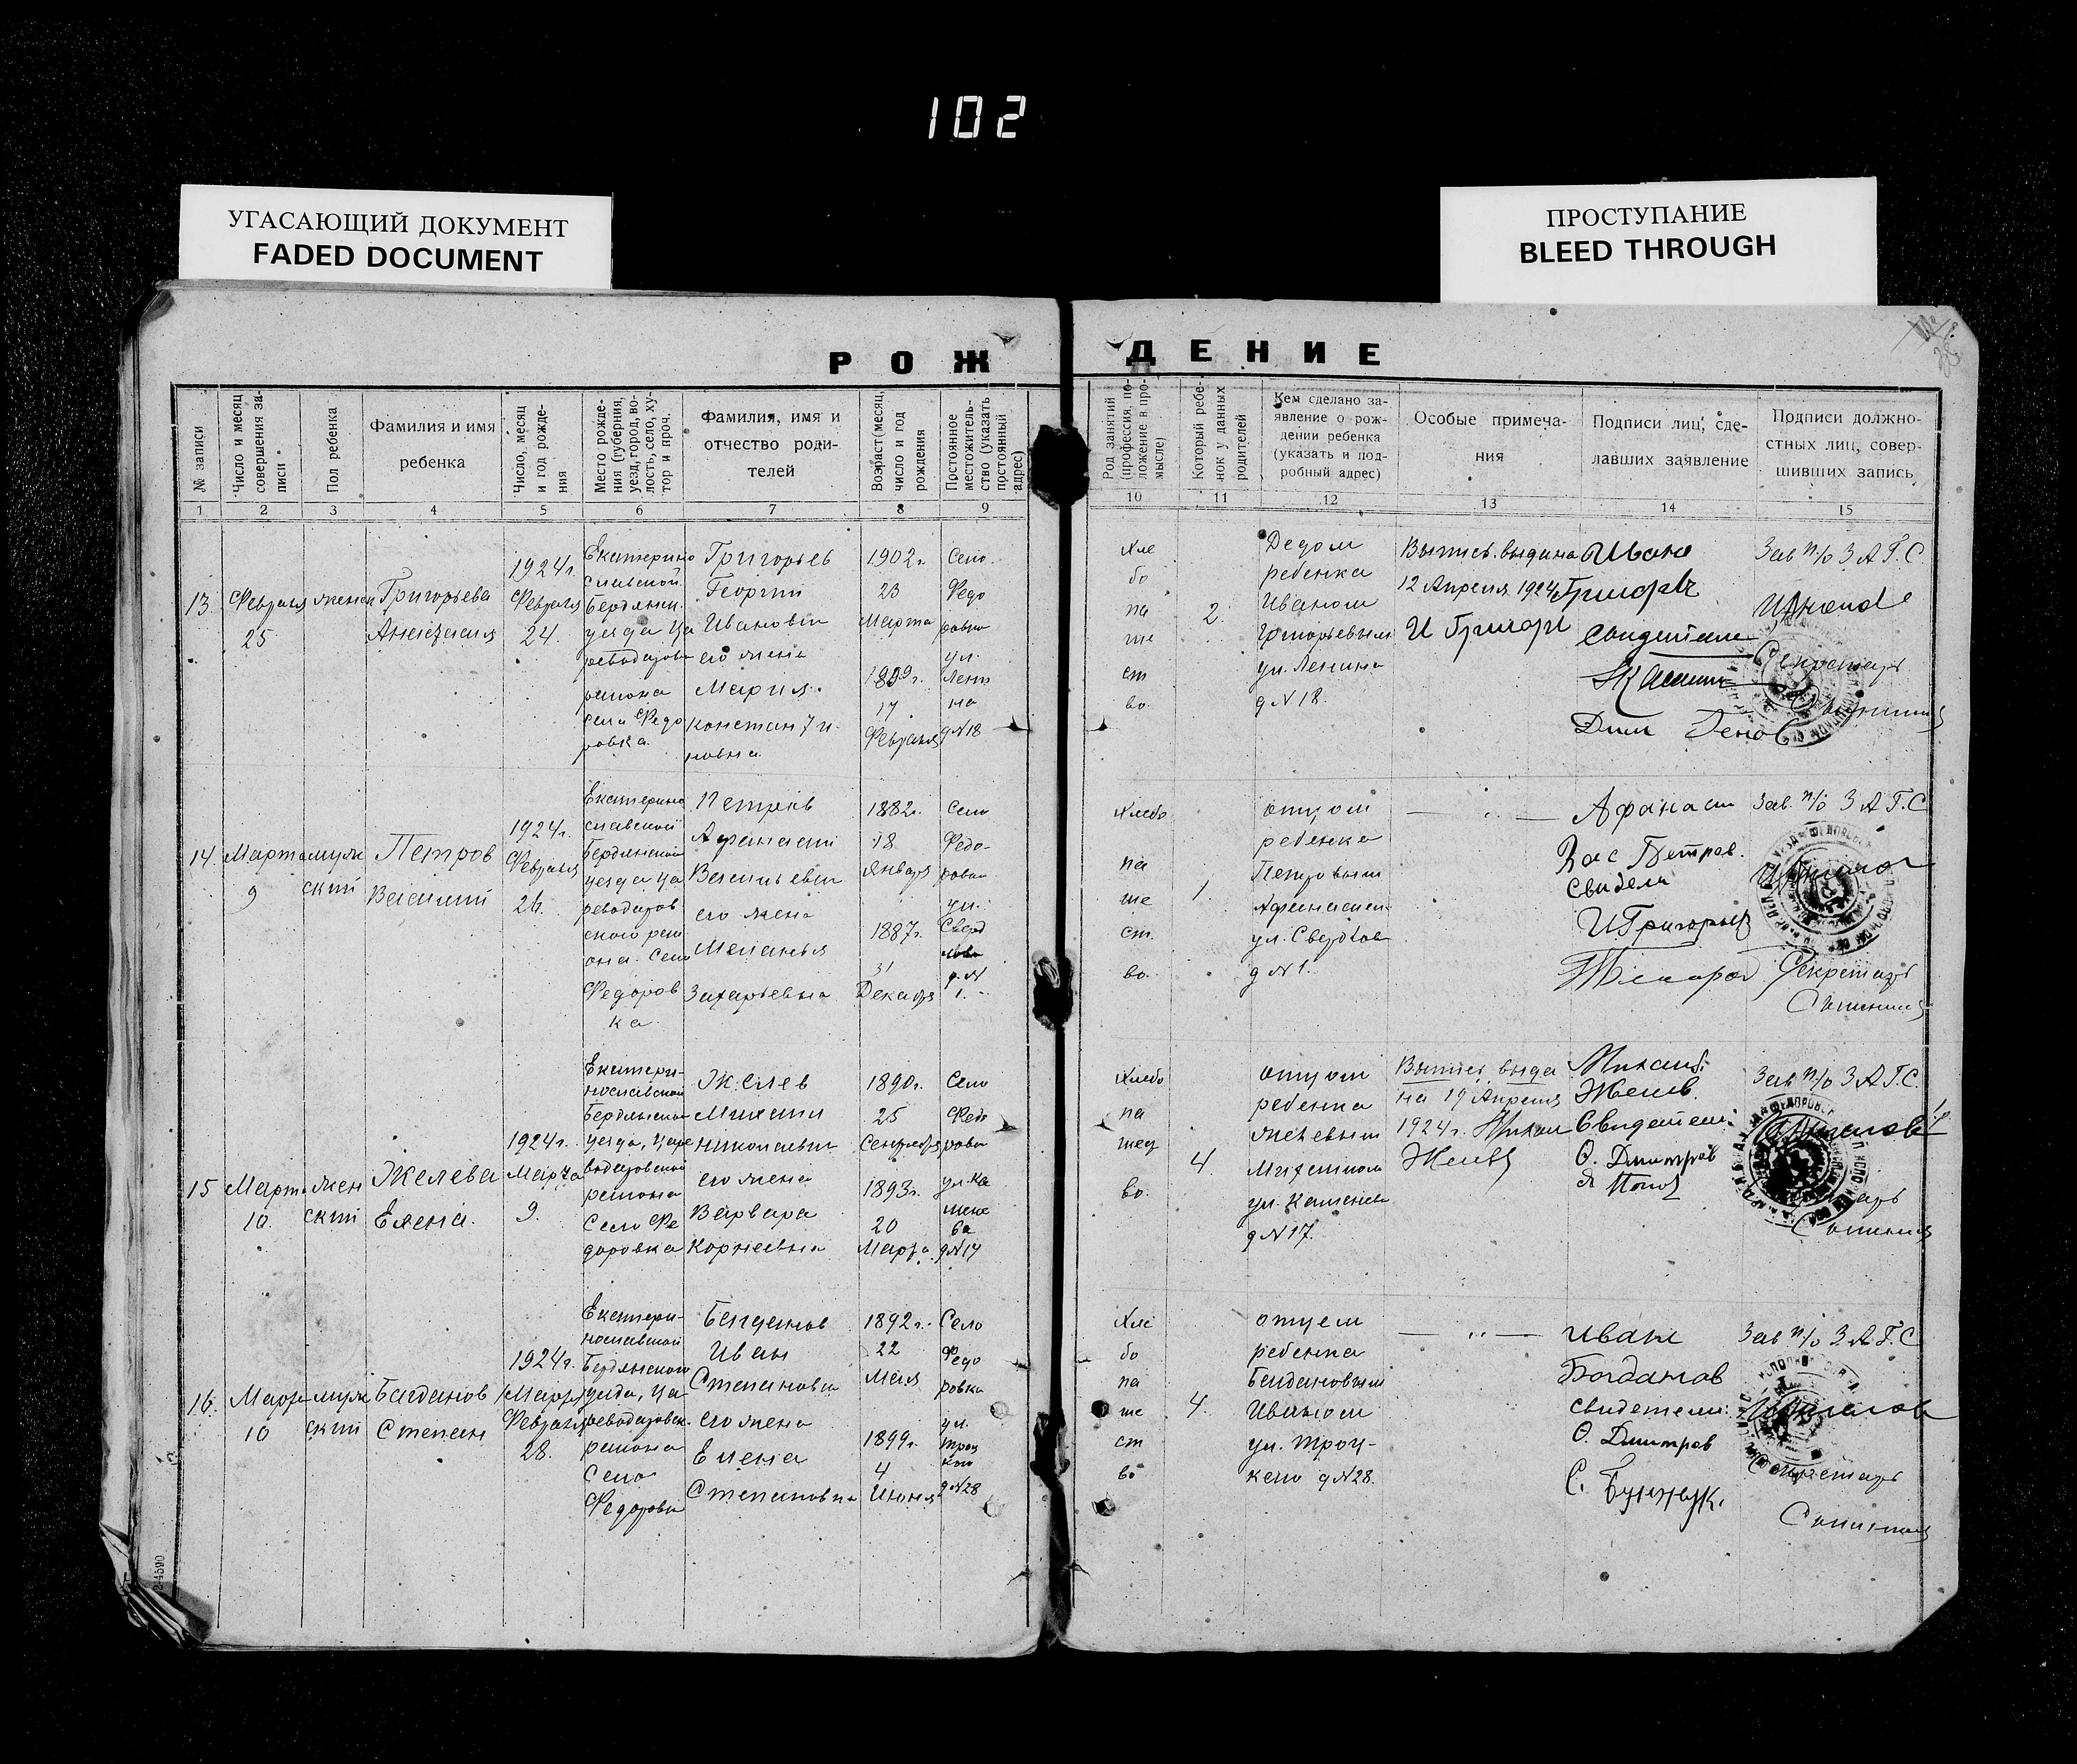 102
УГАСАЮЩИЙ ДОКУМЕНТ
FADED DOCUMENT
ПРОСТУПАНИЕ
BLEED THROUGH
РОЖДЕНИЕ
№ записи
Число и месяц
совершения за-
писи
Пол ребенка
Фамилия и имя
ребенка
Число, месяц
и год рожде-
ния
Место рожде-
ния (губерния,
уезд, город, во-
лость, село, ху-
тор и проч.
Фамилия, имя и
отчество роди-
телей
Возраст (месяц,
число и год
рождения
Постоянное
местожитель-
ство (указать
постоянный
адрес)
Род занятий
(профессия, по-
ложение в про-
мысле)
Который ребе-
нок у данных
родителей
Кем сделано за-
явление о рож-
дении ребенка
(указать и под-
робный адрес)
Особые примеча-
ния
Подписи лиц, сде-
лавших заявление
Подписи должно-
стных лиц, совер-
шивших запись
1 2 3 4 5 6 7 8 9 10 11 12 13 14 15
13.
Февраля
25
женск
Григорьева
Анастасия
1924г.
Февраля
24.
Екатерино
славской
Бердянск.
уезда Ца
реводаров
района
села Федо
ровка
Григорьев
Георгий
Иванович
его жена
Мария
Константи-
новна
1902г.
23
Марта
17
Февраля
Село
Федо
ровка
ул.
Лени
на
д№18
Хле
бо
па
ше
ст
во.
2.
Дедом
ребенка
Иваном
Григорьевым
ул. Ленина
д№18.
Выпись выдана
12 Апреля 1924
И Григорі
Ивано
Свидетели
Дим
Зав п/о ЗАГС
Секретарь
14.
Марта
9
муж
ский
Петров
Василий
1924г.
Февраля
26.
Екатерино
славской
Бердянской
уезда Ца
реводаров
ского рай
она. Село
Федоров
ка
Петров
Афанасий
Васильевич
его жена
Меланья
Захарьевна
1882г.
18
Января
1887г.
31
Декабря
Село
Федо-
ровка
ул.
Сверд
лова
д.№
1.
Хлебо
па
ше
ст.
во.
1.
отцом
ребенка
Петровым
Афанасием
ул. Свердлов
д№1.
Афанаси
Вас Петров.
Свидели
И.Григорьев
Зав. п/о ЗАГС
Секретарь
15
Марта
10.
жен
ский
Желева
Елена.
1924г.
Марта
9.
Екатери-
нославской
Бердянской
уезда, Царе
водаровской
района
Село Фе
доровка
Желев
Михаил
Николаевич
его жена
Варвара
Корнеевна
1890г.
25
Сентября
1893г.
20
Марта
Село
Федо
ровка
ул. Ка
мене
ва
д№17
Хлебо
па
шец
во.
4.
отцом
ребенка
Желевым
Михаилом
ул. Каменева
д№17.
Выпись выда
на 19 Апреля
1924г.
Желев
Михаил
Желев.
Свидетели:
О. Дмитров
Я Попов
Зав п/о ЗАГС.
16.
Марта
10
муж
ский
Багданов
Степан
1924г.
Марта
Февраля
28.
Екатери-
нославской
Бердянского
уезда, Ца
реводаровск.
района
Село
Федоровка
Багданов
Иван
Степанович
его жена
Елена
Степановна
1892г.
22
Мая
1899г.
4
Июня
Село
Федо
ровка
ул.
Троц
кого
д№28
Хле
бо
па
ше
ст
во
4.
отцем
ребенка
Багдановым
Иваном
ул. Троц-
кого д№28.
Иван
Богданов
свидетели:
О. Дмитров
Зав п/о ЗАГС
Секретарь